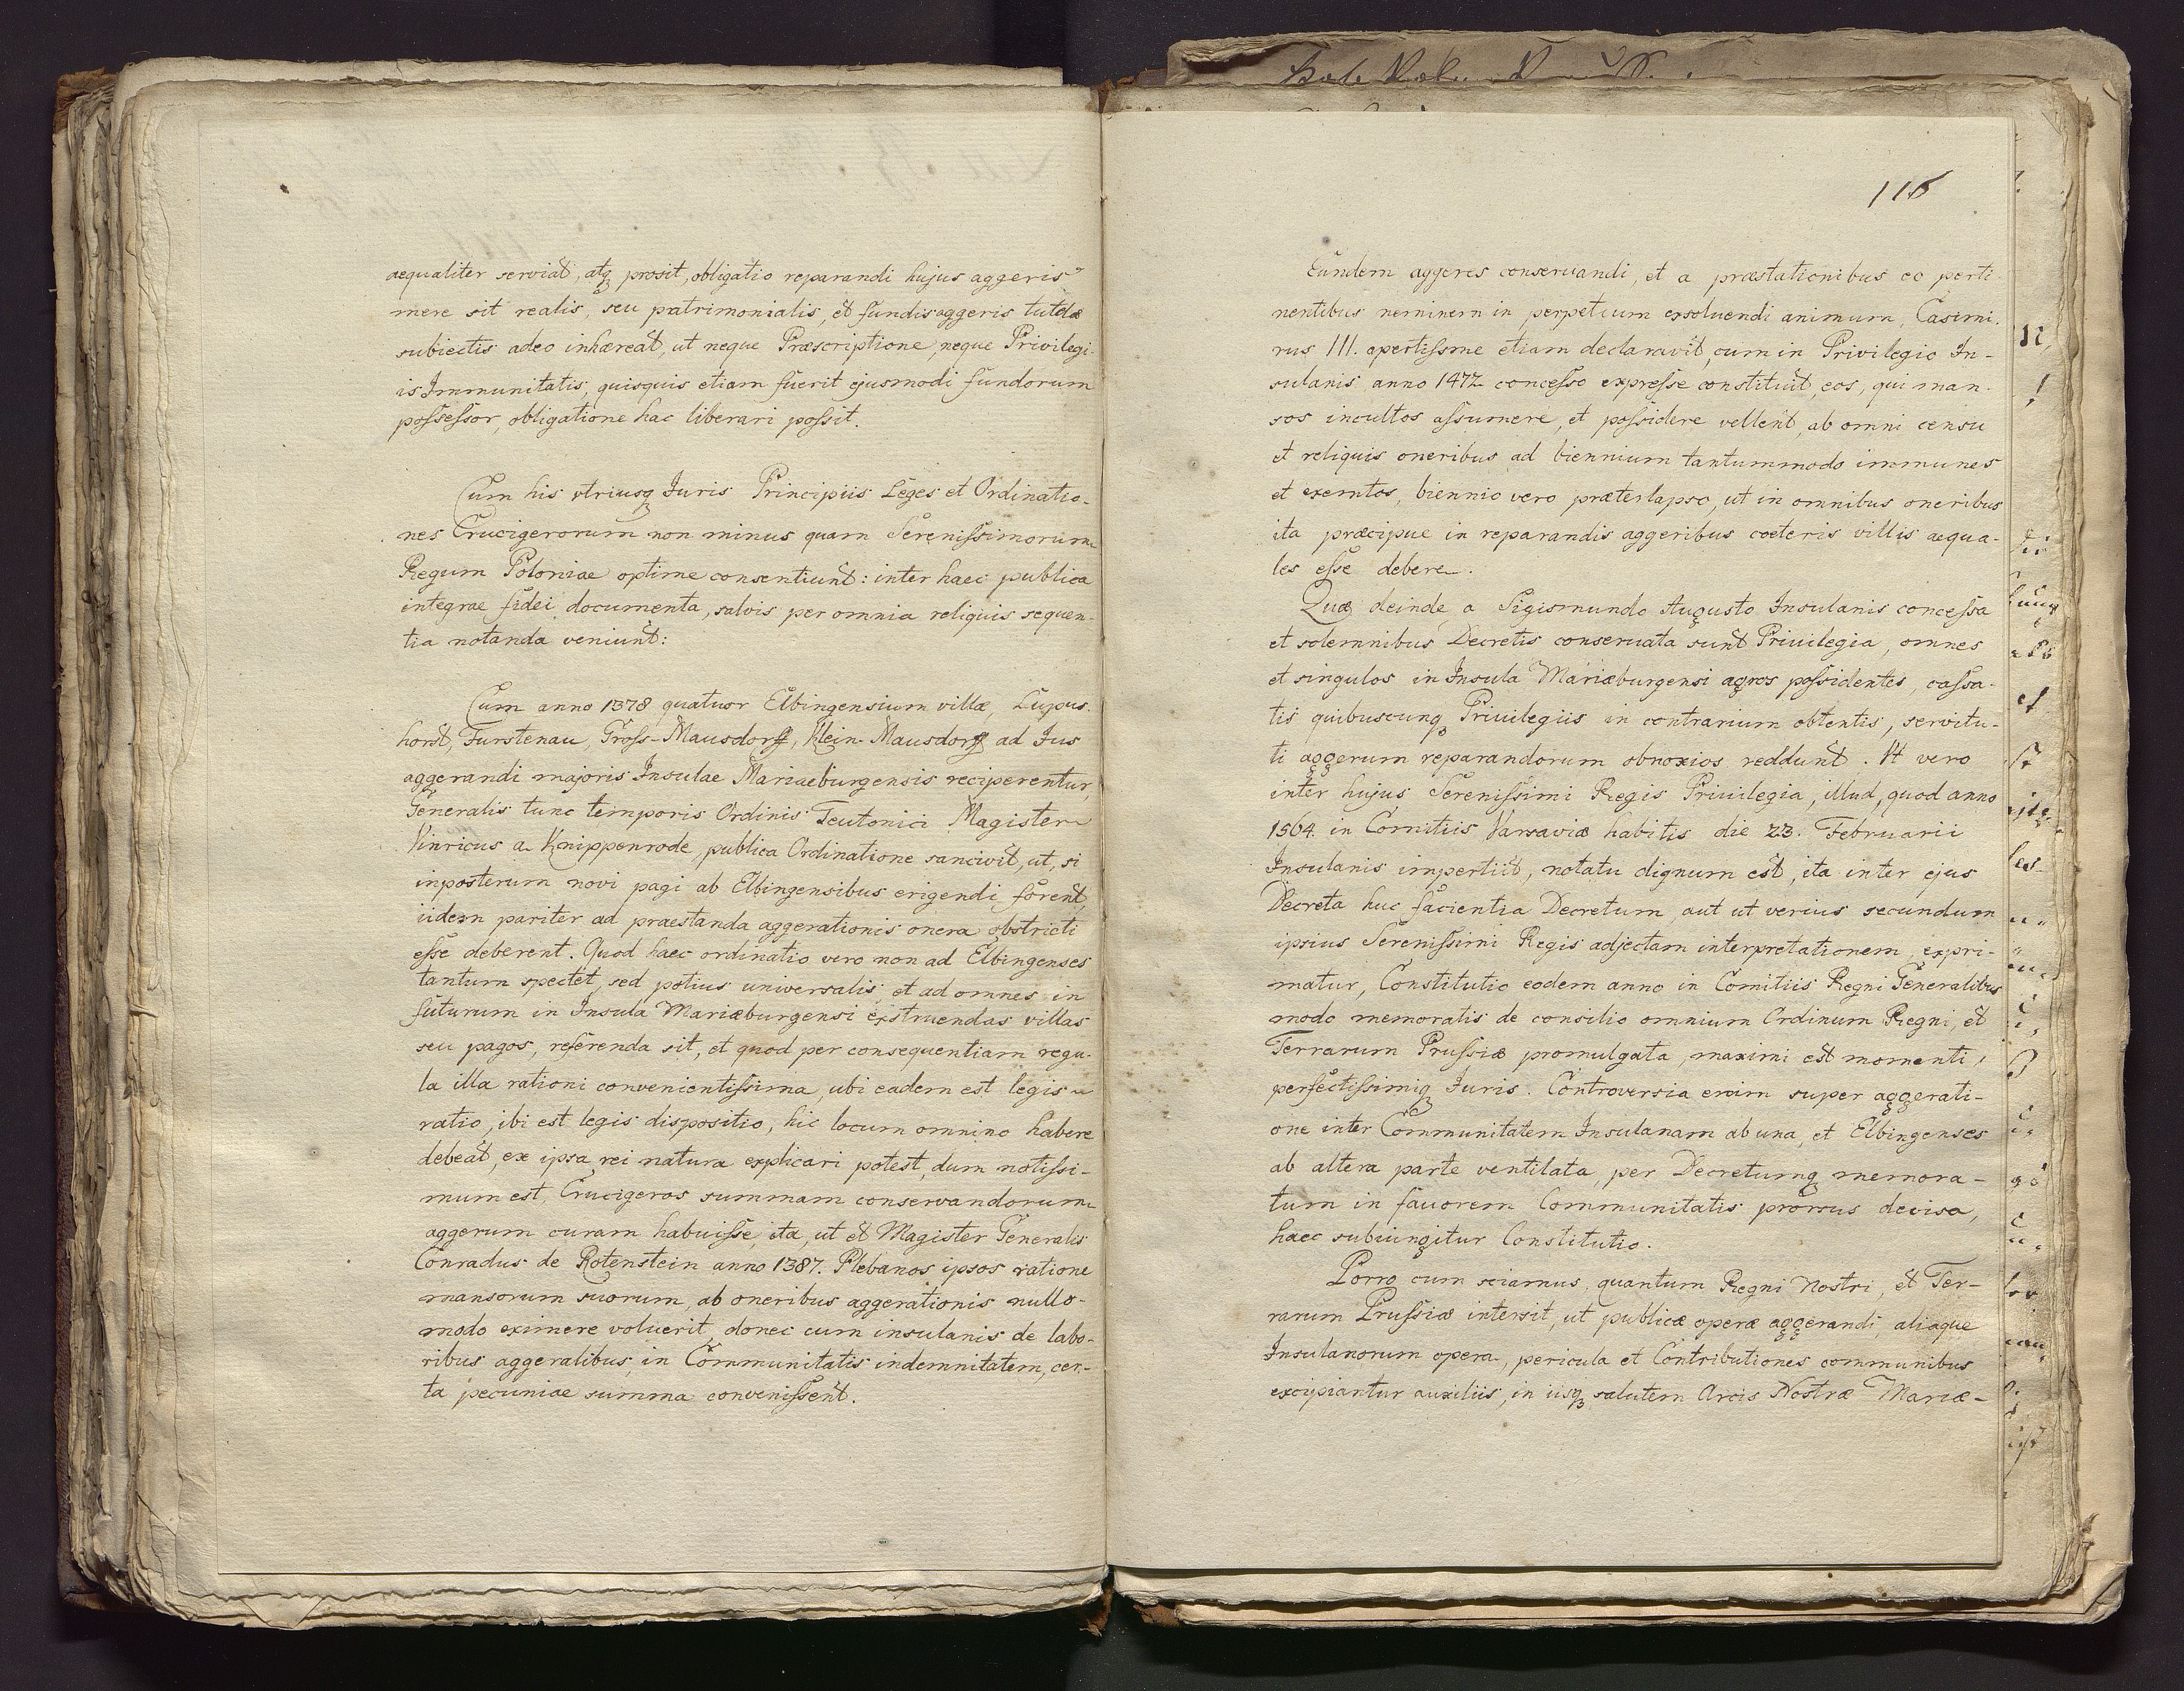 aequaliter serviat, atq prosit, obligatio reparandi hujus aggeris
mere sit realis, seu patrimonialis, et fundis aggeris tutelæ
subiectis adeo inhæreat, ut neque Præscriptione, neque Privilegi-
is Immunitatis, quisquis etiam fuerit ejusmodi fundorum
possessor, obligatione hac liberari possit.
Cum his vtriusq Juris Principiis Leges et Ordinatio-
nes Crucigerorum non minus quam Serenissimorum
Regum Poloniae optime consentiunt: inter haec publica
integrae fidei documenta, salvis per omnia reliquis sequen-
tia notanda veniunt:
Cum anno 1378 quatuor Elbingensium villæ, Lupus-
horst, Furstenau, Gross-Mausdorff, Klein-Mausdorff ad Jus
aggerandi majoris Insulae Mariaeburgensis reciperentur,
Generalis tunc temporis Ordinis Teutonici Magister
Vinricus a Knippenrode, publica Ordinatione sancivit, ut, si
inposterum novi pagi ab Elbingensibus erigendi forent,
iidem pariter ad praestanda aggerationis onera obstricti
esse deberent. Quod haec ordinatio vero non ad Elbingenses
tantum spectet, sed potius universalis et ad omnes in
futurum in Insula Mariæburgensi exstruendas villas
seu pagos, referenda sit, et quod per consequentiam regu-
la illa rationi convenientissima, ubi eadem est legis
ratio, ibi est legis dispositio, hic locum omnino habere
debeat, ex ipsa rei natura explicari potest, dum notissi-
mum est, Crucigeros summam conservandorum
aggerum curam habuisse, ita, ut et Magister Generalis
Conradus de Rotenstein anno 1387. Plebanos ipsos ratione
mansorum suorum, ab oneribus aggerationis nullo-
modo eximere voluerit, donec cum insulanis de labo-
ribus aggeralibus, in Communitatis indemnitatem, cer-
ta pecuniae summa convenissent.
116
Eundem aggeres conservandi, et a præstationibus eo perti-
nentibus neminem in perpetuum exsoluendi animum, Casimi-
rus III. apertissme etiam declaravit, cum in Privilegio In-
sulanis anno 1472 concesso expresse constituit, eos, qui man-
sos incultos assumere, et possidere vellent, ab omni censu
et reliquis oneribus ad biennium tantummodo immunes
et exemtos, biennio vero præterlapso, ut in omnibus oneribus
ita præcipue in reparandis aggeribus coeteris villis aequa-
les esse debere.
Quæ deinde a Sigismundo Augusto Insulanis concessa
et solemnibus Decretis conservata sunt Privilegia, omnes
et singulos in Insula Mariæburgensi agros possidentes, cassa-
tis quibuscunq Privilegiis in contrarium obtentis, servitu-
ti aggerum reparandorum obnoxios reddunt. Vt vero
inter hujus Serenissimi Regis Privilegia, illud, quod anno
1564. in Comitiis Varsaviæ habitis die 23. Februarii
Insulanis impertiit, notatu dignum est, ita inter ejus
Decreta huc facientia Decretum, aut ut verius secundum
ipsius Serenissimi Regis adjectam interpretationem, expri-
matur, Constitutio eodem anno in Comitiis Regni Generalibus
modo memoratis de consilio omnium Ordinum Regni, et
Terrarum Prussiæ promulgata, maximi est momenti,
perfectissimiq Juris. Controversia enim super aggerati-
one inter Communitatem Insulanam ab una, et Elbingenses
ab altera parte ventilata, per Decretumq memora-
tum in fauorem Communitatis prorsus decisa,
haec subiungitur Constitutio.
Porro cum sciamus, quantum Regni Nostri, et Ter-
rarum Prussiæ intersit, ut publicæ operæ aggerandi, aliaque
Insulanorum opera, pericula et Contributiones communibus
excipiantur auxiliis, in iisq salutem Arcis Nostræ Mariæ-